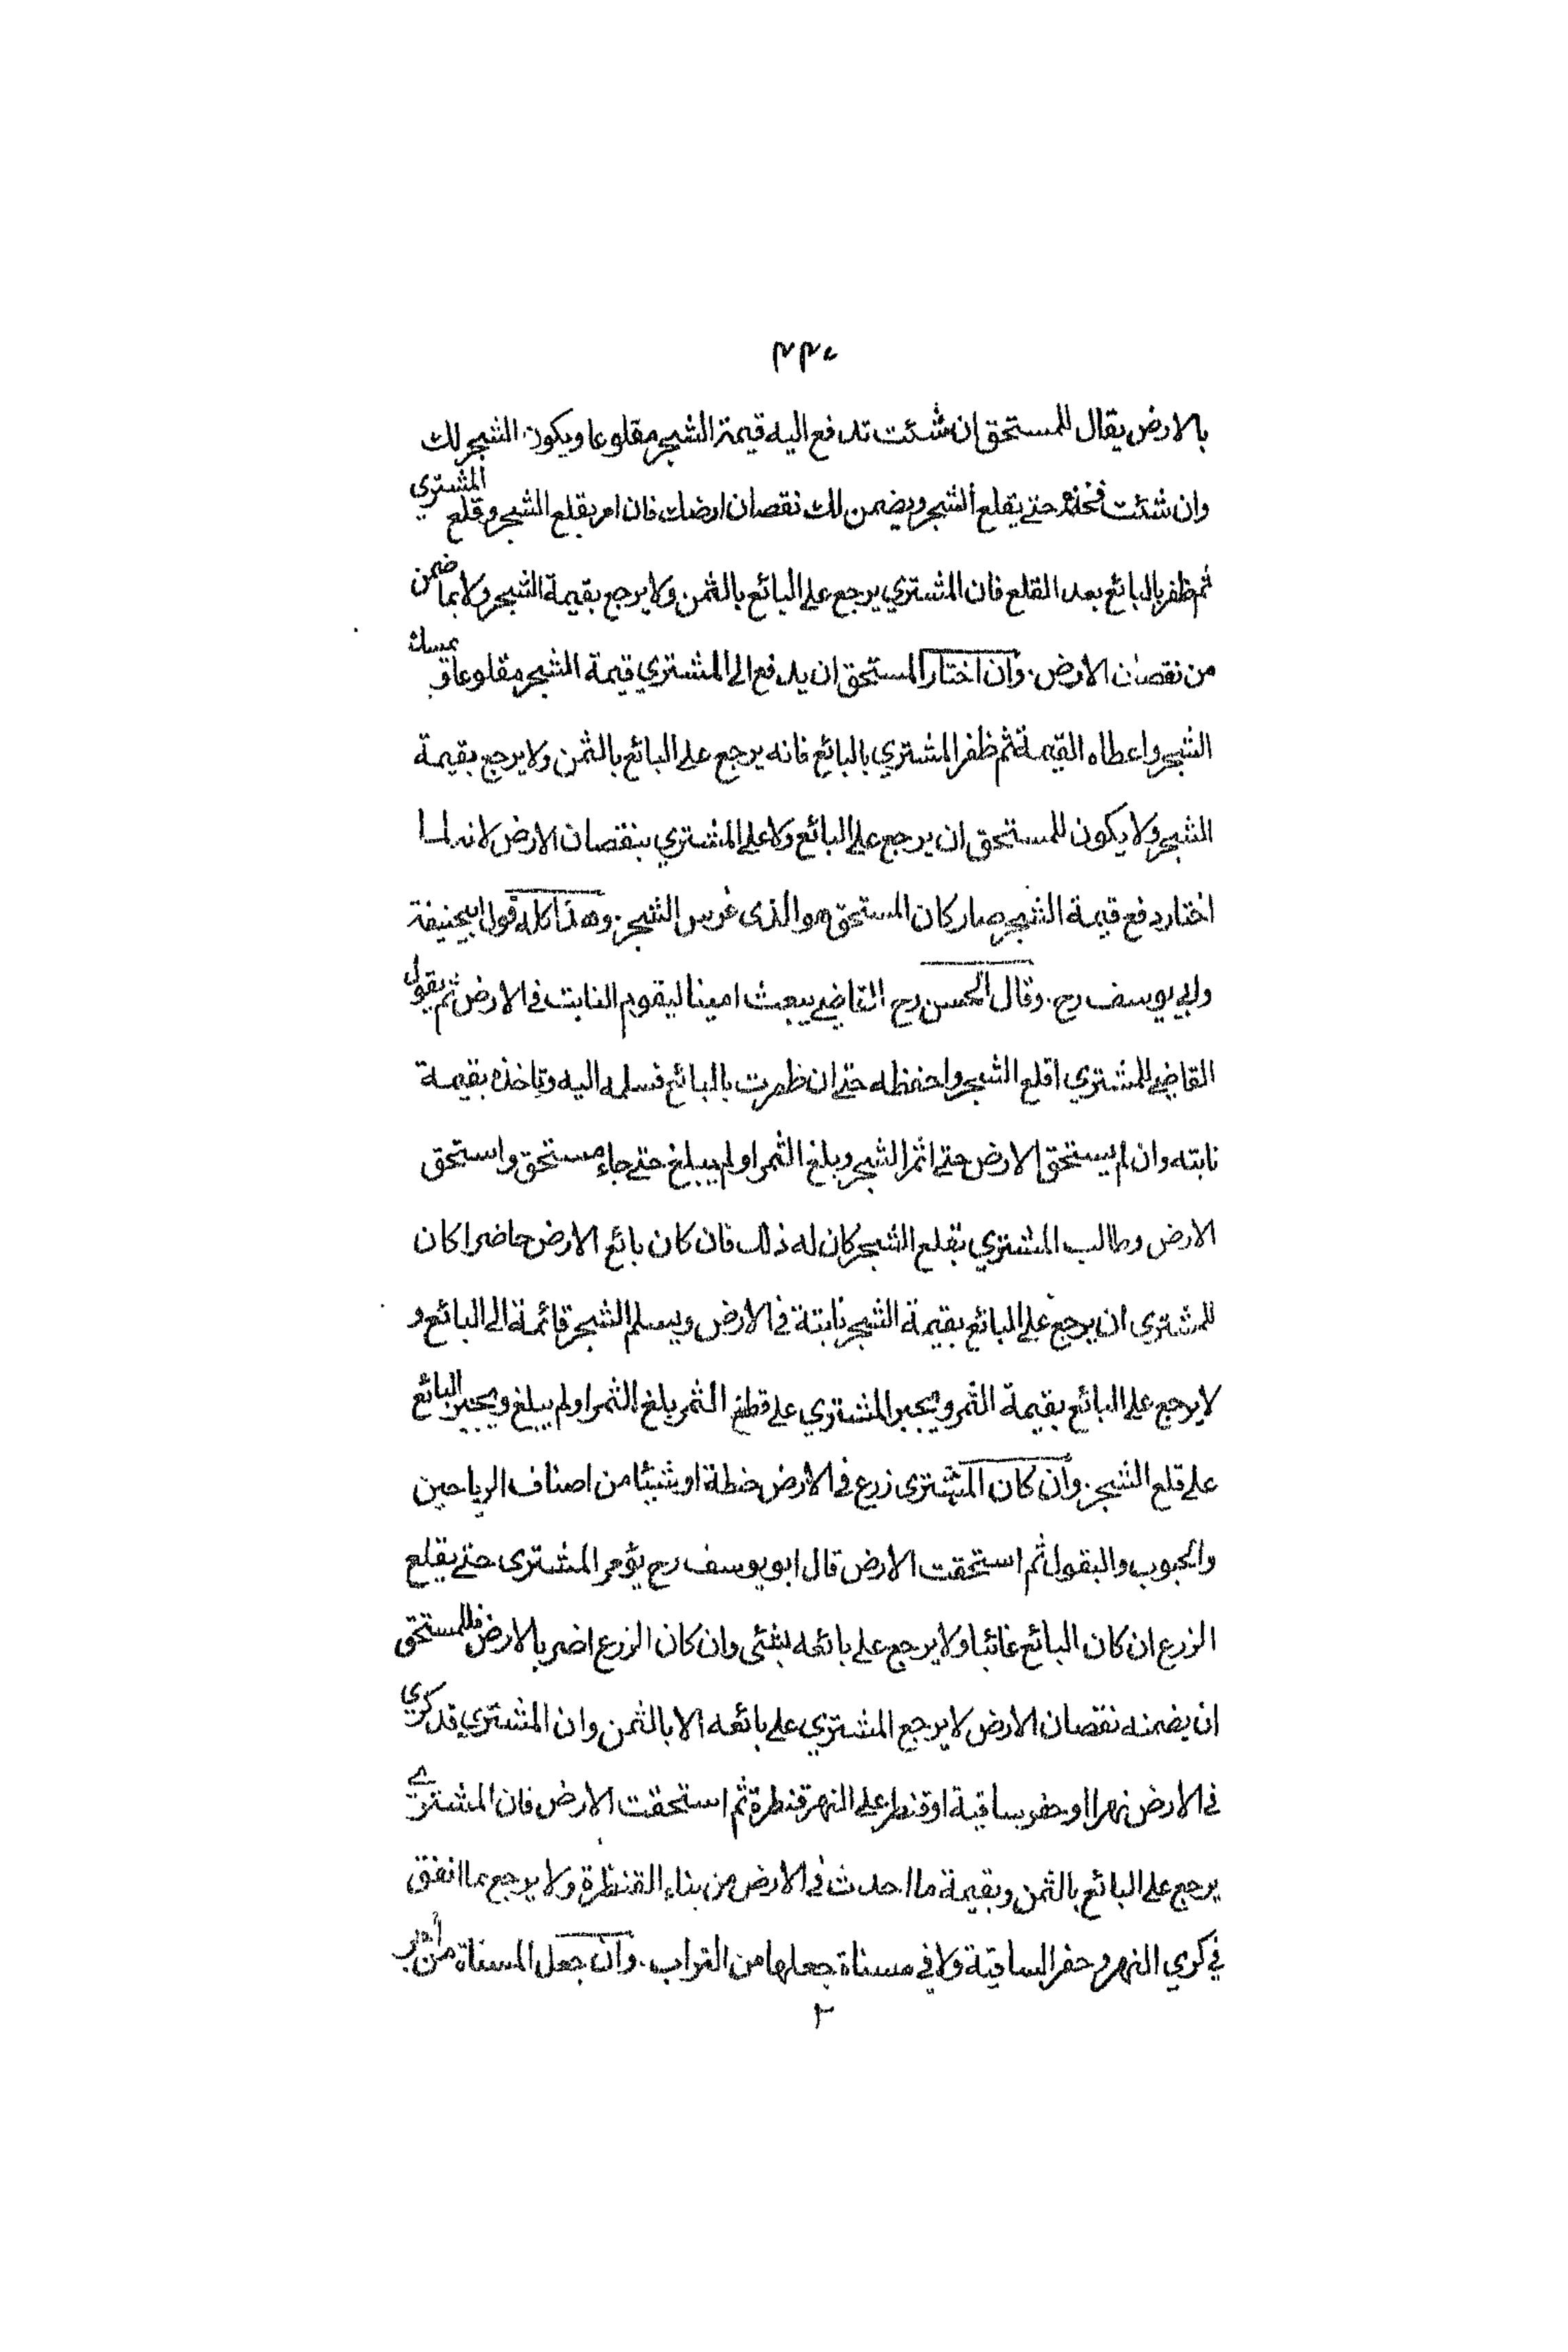 بالارض يقال للمستحق ان شئت تدفع اليه قيمة الشجر مقلوعا ويكون الشجر لك
وان شئت فخذه حتے يقلع الشجر ويضمن لك نقصان ارضك فان امر بقلع الشجر وقلع المشتري
ثم ظفر بالبائع بعد القلع فان المشتري يرجع علے البائع بالثمن ولا يرجع بقيمة الشجر ولا بما ضمن
من نقصان الارض. وان اختار المستحق ان يدفع الے المشتري قيمة الشجر مقلوعا ويمسك
الشجر واعطاه القيمة ثم ظفر المشتري بالبائع فانه يرجع علے البائع بالثمن ولا يرجع بقيمة
الشجر ولا يكون للمستحق ان يرجع علے البائع ولا علے المشتري بنقصان الارض لانه لما
اختار دفع قيمة الشجر صار كان المستحق هو الذى غرس الشجر. وهذا كله قول ابيحنيفة
وابي يوسف رح. وقال الحسن رح القاضے يبعث امينا ليقوم النابت فے الارض ثم يقول
القاضے للمشتري اقلع الشجر واحفظه حتے ان ظهرت بالبائع فسلمه اليه وتاخذه بقيمة
نابته وان لم يستحق الارض حتے اثمر الشجر وبلغ الثمر او لم يبلغ حتے جاء مستحق واستحق
الارض وطالب المشتري بقلع الشجر كان له ذلك فان كان بائع الارض حاضرا كان
للمشترى ان يرجع علے البائع بقيمة الشجر نابتة فے الارض ويسلم الشجر قائمة الے البائع و
لا يرجع علے البائع بقيمة الثمر ويجبر المشتري علے قطع الثمر بلغ الثمر او لم يبلغ ويجبر البائع
علے قلع الشجر. وان كان المشترى زرع فے الارض حنطة او شيئا من اصناف الرياحين
والحبوب والبقول ثم استحقت الارض قال ابو يوسف رح يؤمر المشترى حتے يقلع
الزرع ان كان البائع غائبا ولا يرجع علے بائعه بشئى وان كان الزرع اضر بالارض فللمستحق
ان يضمنه نقصان الارض لا يرجع المشتري علے بائعه الا بالثمن وان المشتري قد كري
فے الارض نهرا او حفر ساقية او قنطر علے النهر قنطرة ثم استحقت الارض فان المشترے
يرجع علے البائع بالثمن وبقيمة ما احدث فے الارض من بناء القنطرة ولا يرجع بما انفق
في كري النهر وحفر الساقية ولا في مسناة جعلها من التراب. وان جعل المسناة من